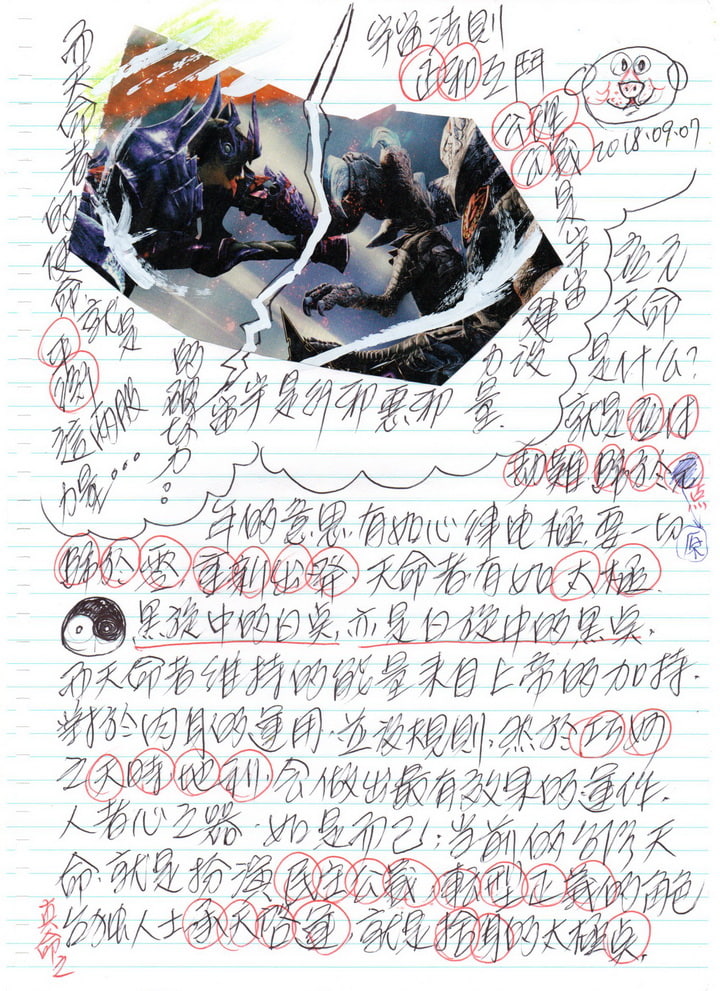 宇宙法則
正邪互鬥
2018.09.07
是宇宙
建設
力
量
宇宙
的破坏力。
而天命者的使命
就是
平衡
這兩股
力量...
天命
是什么?
就是
劫難歸於
点
原
的意思,有如心律电極,要一切
歸於零,重新出發,天命者有如太極
黑旋中的白点,亦是白旋中的黑点,
而天命者維持的能量来自上帝的加持.
對於肉身的運用,並没規則,然於巧妙
之天時,地利,會做出最有效果的運作,
人者心之器,如是而已;当前的台湾天
命,就是扮演民主公義,轉型正義的角色
台独人士承天啓運,就是捨身的太極点.
真命之